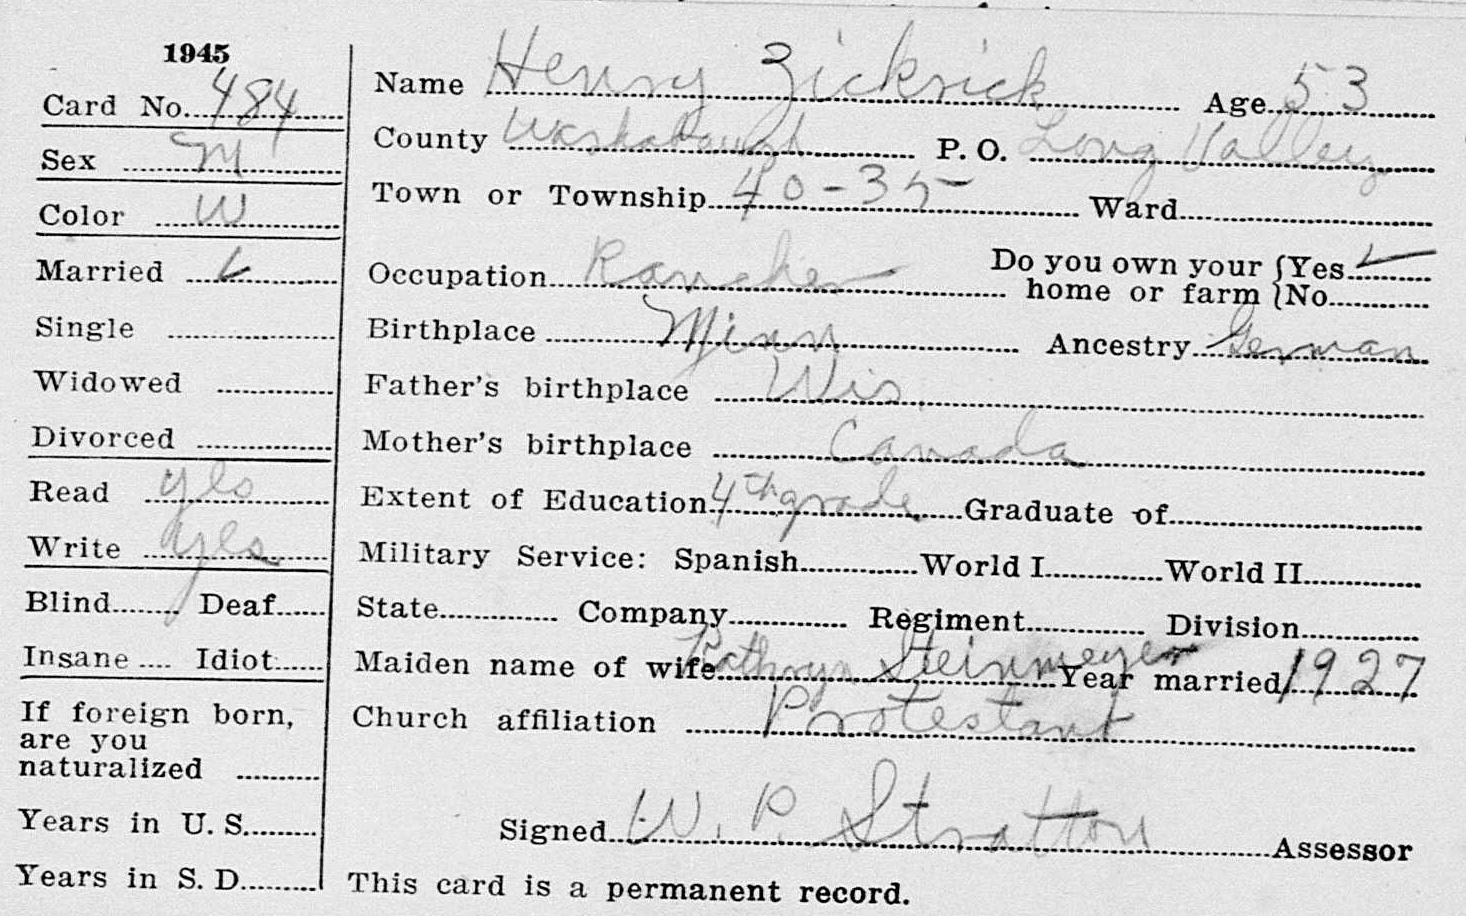 1945
Card No. 484
Sex M
Color W
Married ✓
Single
Widowed
Divorced
Read yes
Write yes
Blind Deaf
Insane Idiot
If foreign born,
are you
naturalized
Years in U. S.
Years in S. D.
Name Henry Zickrick Age 53
County Washabaugh P. O. Long Valley
Town or Township 40-35 Ward
Occupation Rancher Do you own your home or farm {Yes ✓ {No
Birthplace Minn Ancestry German
Father's birthplace Wis.
Mother's birthplace Canada
Extent of Education 4th grade Graduate of
Military Service: Spanish World I World II
State Company Regiment Division
Maiden name of wife Kathryn Steinmeyer Year married 1927
Church affiliation Protestant
Signed W. P. Stratton Assessor
This card is a permanent record.